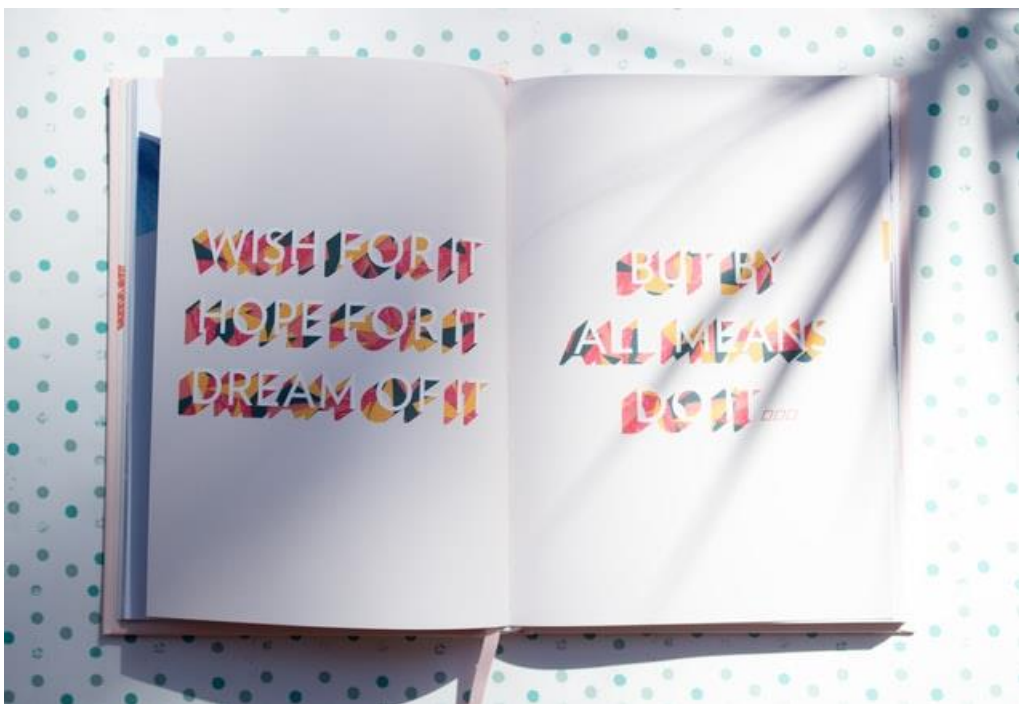 WISH FOR IT
HOPE FOR IT
DREAM OF IT
BUT BY
ALL MEANS
DO IT...